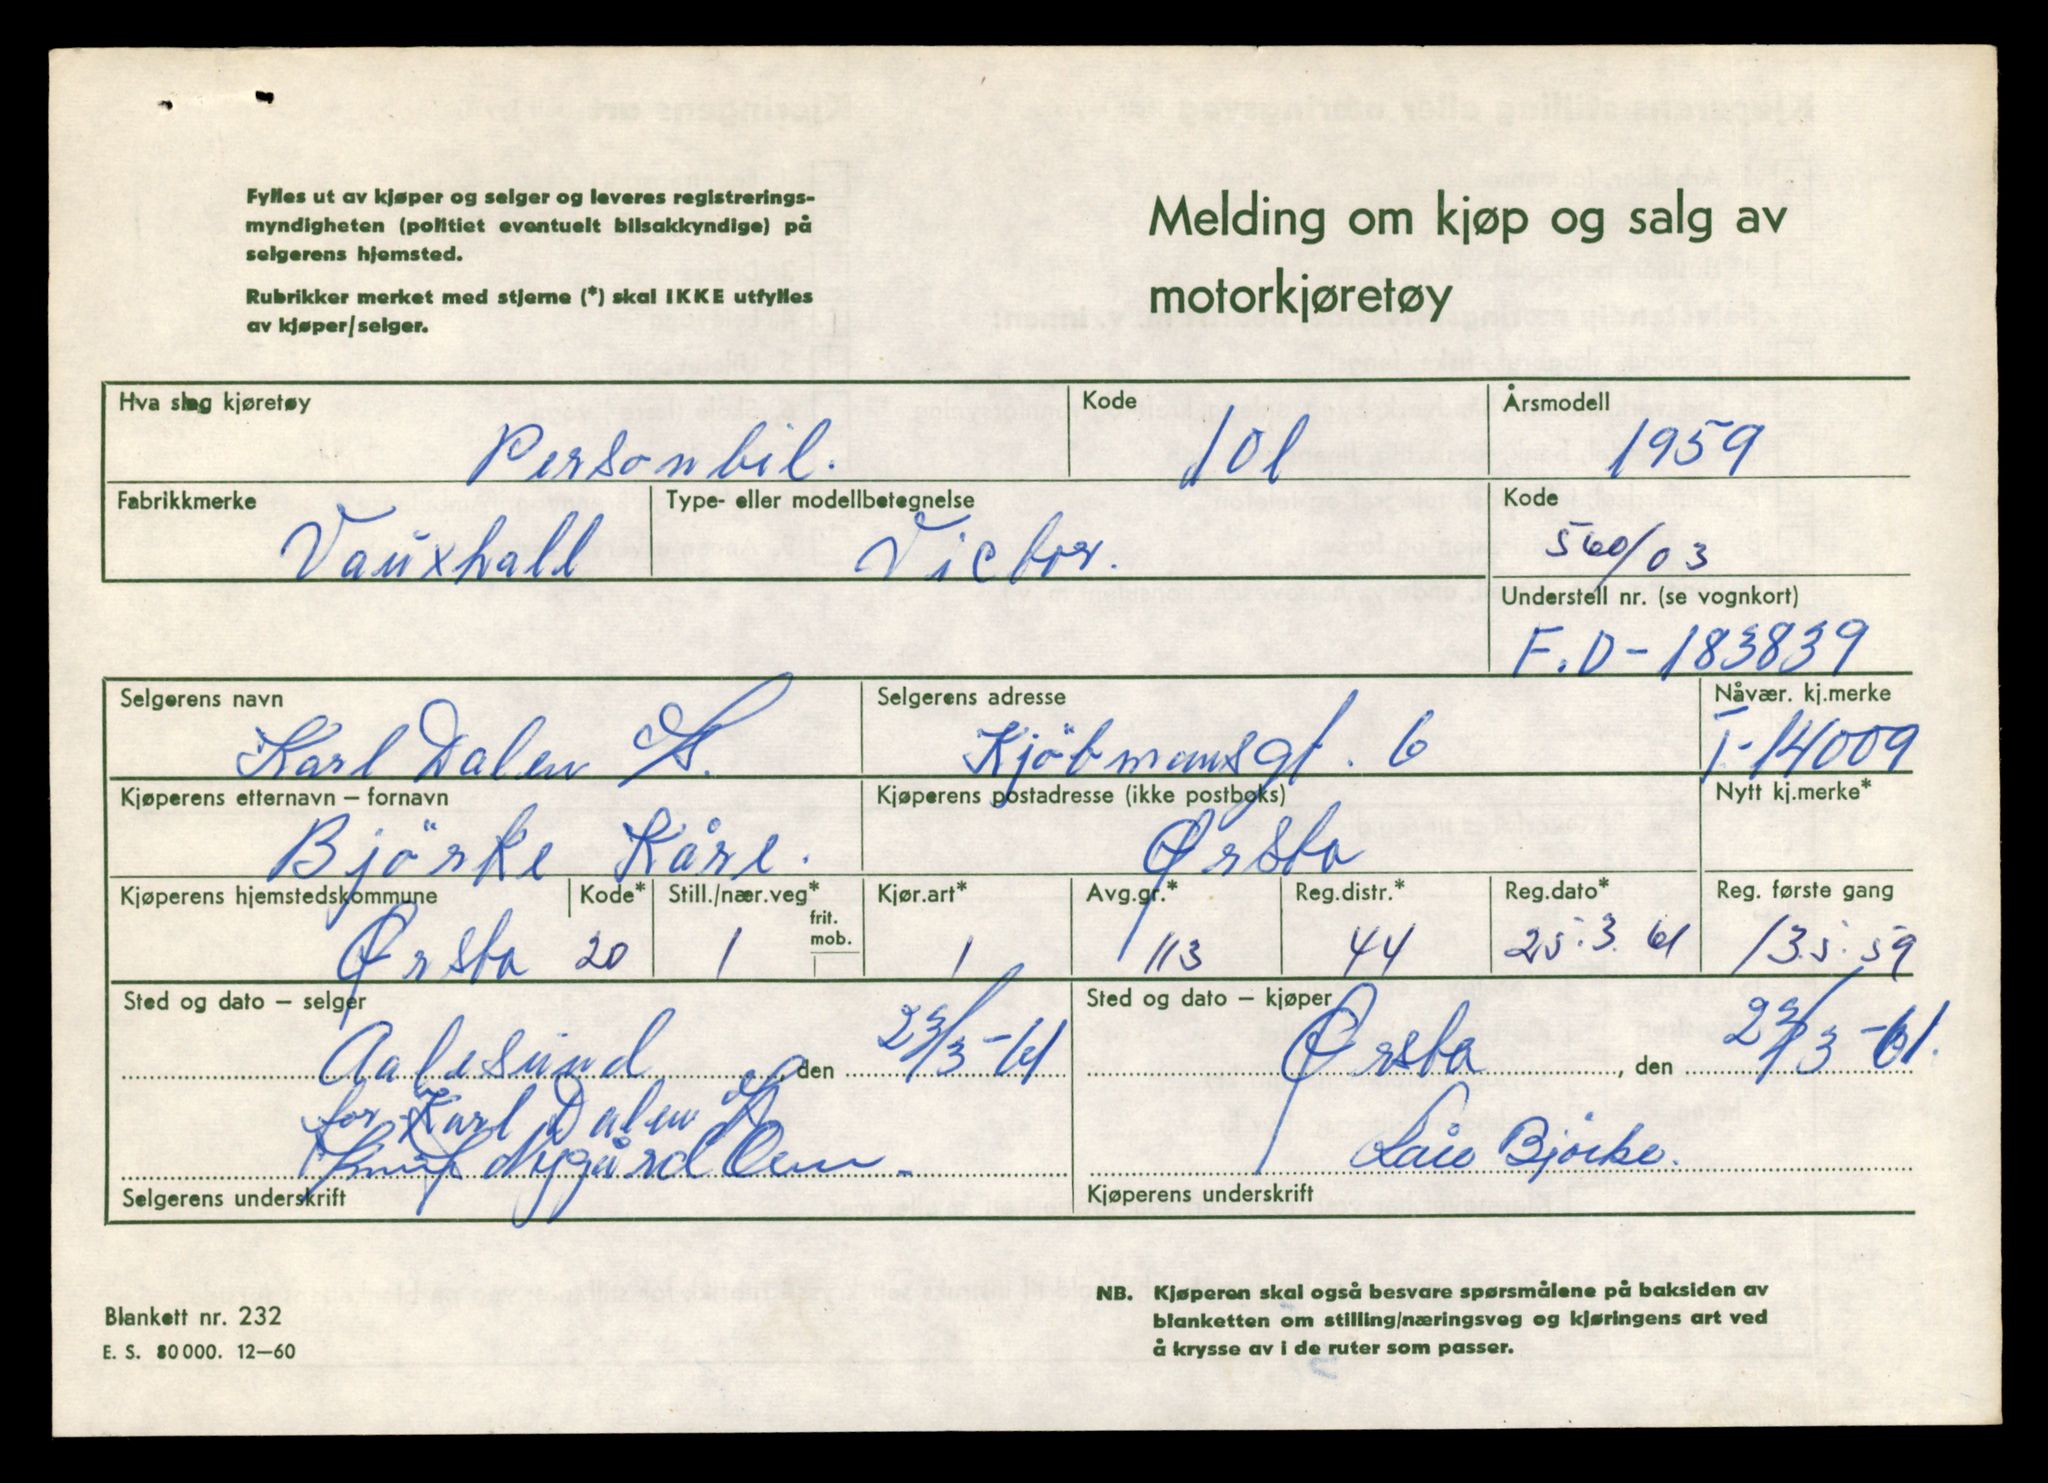 Fylles ut av kjøper og selger og leveres registrerings-
myndigheten (politiet eventuelt bilsakkyndige) på
selgerens hjemsted.
Rubrikker merket med stjerne (*) skal IKKE utfylles
av kjøper/selger.
Melding om kjøp og salg av
motorkjøretøy
Hva slag kjøretøy Kode Årsmodell
Personbil. 101 1959
Fabrikkmerke Type- eller modellbetegnelse Kode
Vauxhall Victor. 560/03
Understell nr. (se vognkort)
F.D-183839
Selgerens navn Selgerens adresse Nåvær. kj.merke
Karl Dalen Kjöbmansgt. 6 T-14009
Kjøperens etternavn – fornavn Kjøperens postadresse (ikke postboks) Nytt kj.merke*
Björke Kåre. Ørsta
Kjøperens hjemstedskommune Kode* Still./nær.veg* frit. mob. Kjør.art* Avg.gr.* Reg.distr.* Reg.dato* Reg. første gang
Ørsta 20 1 1 113 44 25.3.61 13.5.59
Sted og dato – selger Sted og dato – kjøper
Aalesund den -61 Ørsta, den -61.
for Karl Dalen
Nygård Bjørke.
Selgerens underskrift Kjøperens underskrift
Blankett nr. 232
E. S. 80 000. 12–60
NB. Kjøperen skal også besvare spørsmålene på baksiden av
blanketten om stilling/næringsveg og kjøringens art ved
å krysse av i de ruter som passer.